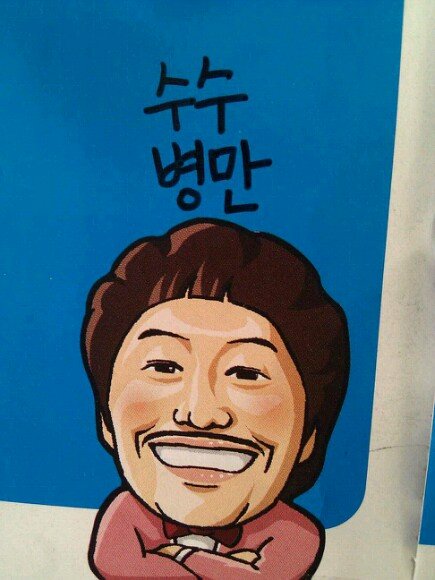 수수
병만